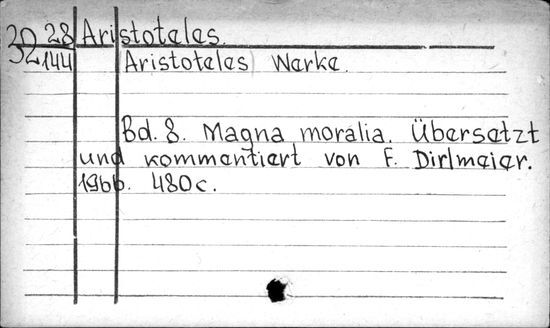 32 28 Aristoteles.
144 Aristoteles Werke.
Bd. 8. Magna moralia. Übersetzt
und kommentiert von F. Dirlmeier.
1966. 480c.